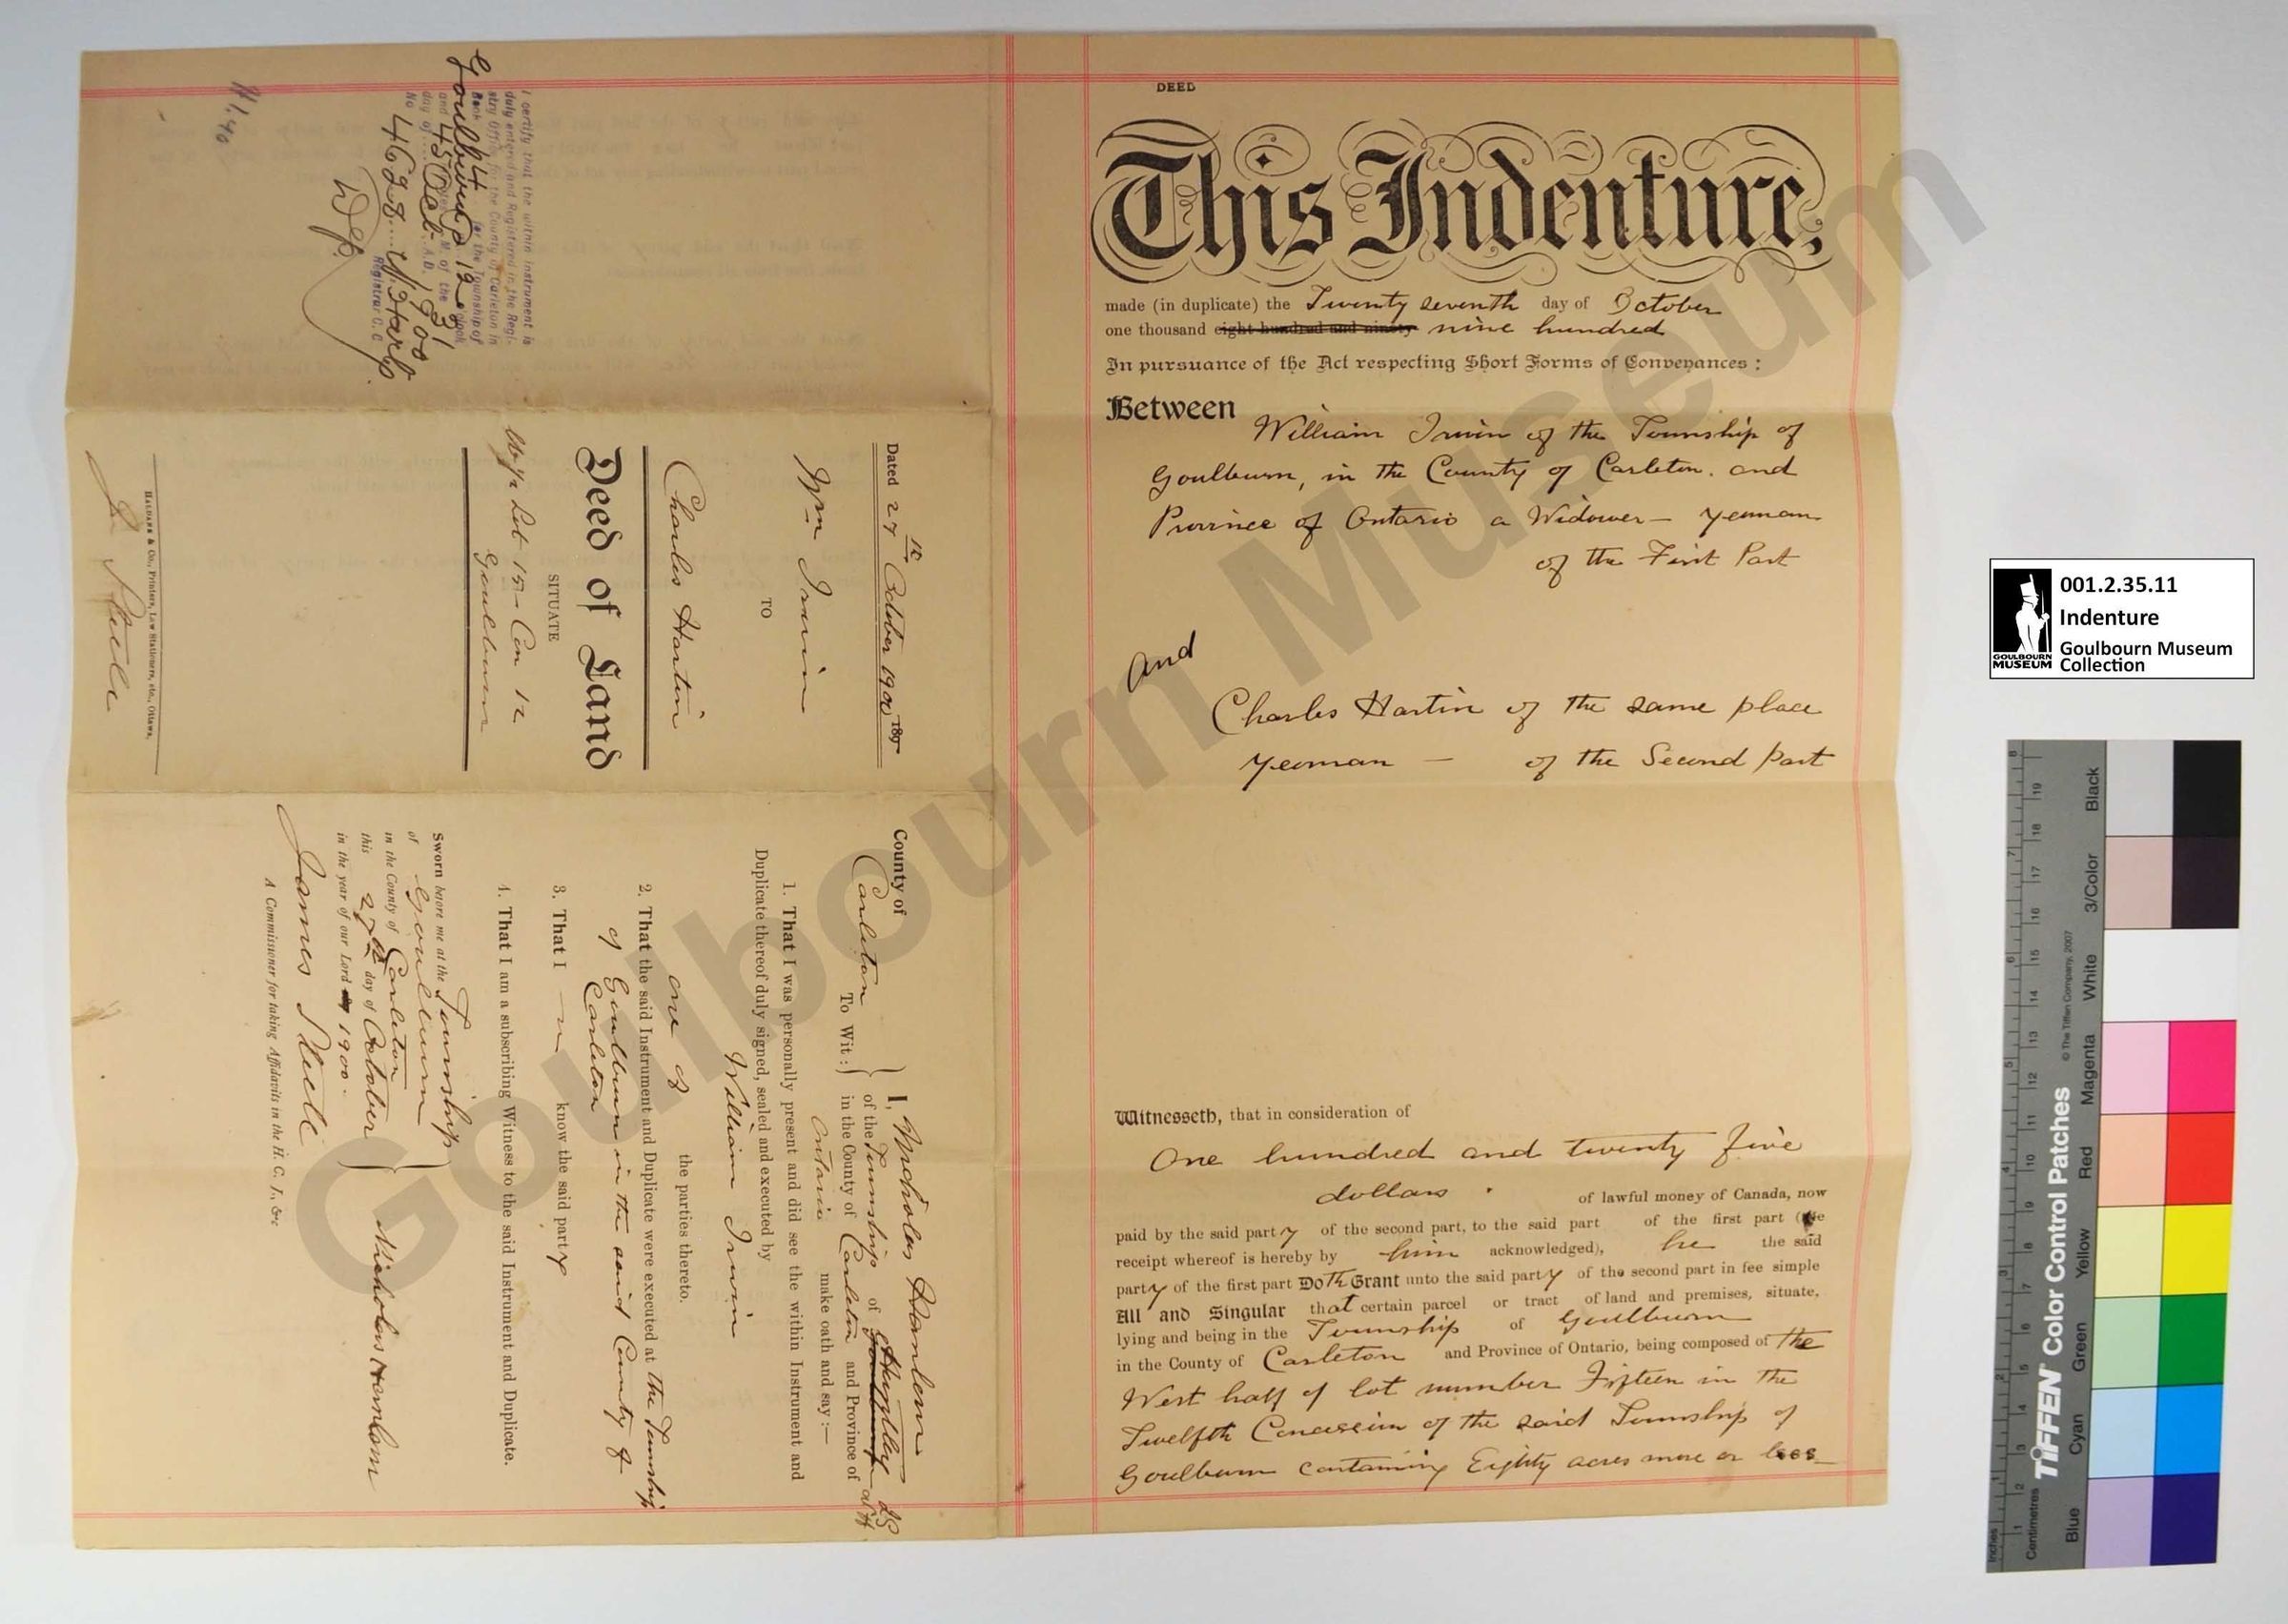 DEED
This Indenture,
made (in duplicate) the Twenty seventh day of October
one thousand eight hundred and ninety nine hundred
In pursuance of the Act respecting Short Forms of Conveyances :
Between
William Irwin of the Township of
Goulburn, in the County of Carleton. and
Province of Ontario a Widower — yeoman
of the First Part
and
Charles Hartin of the same place
yeoman — of the Second part
Witnesseth, that in consideration of
One hundred and twenty five
dollars of lawful money of Canada, now
paid by the said party of the second part, to the said part of the first part (the
receipt whereof is hereby by him acknowledged), he the said
party of the first part Doth Grant unto the said party of the second part in fee simple
All and Singular that certain parcel or tract of land and premises, situate,
lying and being in the Township of Goulburn
in the County of Carleton and Province of Ontario, being composed of the
West half of lot number Fifteen in the
Twelfth Concession of the said Township of
Goulburn containing Eighty acres more or less
I certify that the within instrument is
duly entered and Registered in the Regi-
stry Office for the County of Carleton in
Book 4 for the Township of
Goulbourn 12 o'clock
and 45 M. of the 31
day of Oct. A.D. 1900
No 4628
Registrar C. C.
Dep.
$1.40
Dated 27th October 1900 189
Wm Irwin
TO
Charles Hartin
Deed of Land
SITUATE
W 1/2 Lot 15 - Con 12
Goulburn
HALDANE & Co., Printers, Law Stationers, etc., Ottawa.
J. Steele
County of
Carleton
To Wit :
I, Nicholas Hanlon
of the Township of Goulburn Huntley
in the County of Carleton and Province of
Ontario make oath and say :—
1. That I was personally present and did see the within Instrument and
Duplicate thereof duly signed, sealed and executed by
William Irwin
one of the parties thereto.
2. That the said Instrument and Duplicate were executed at the Township
of Goulburn in the said County of
Carleton
3. That I know the said party
4. That I am a subscribing Witness to the said Instrument and Duplicate.
Sworn before me at the Township
of Goulburn
in the County of Carleton
this 27th day of October
in the year of our Lord 1900.
Nicholas Hanlon
James Steele
A Commissioner for taking Affidavits in the H. C. J., &c
Goulbourn Museum
001.2.35.11
Indenture
Goulbourn Museum
Collection
GOULBOURN
MUSEUM
TIFFEN Color Control Patches
© The Tiffen Company, 2007
Inches
Centimetres
Blue
Cyan
Green
Yellow
Red
Magenta
White
3/Color
Black